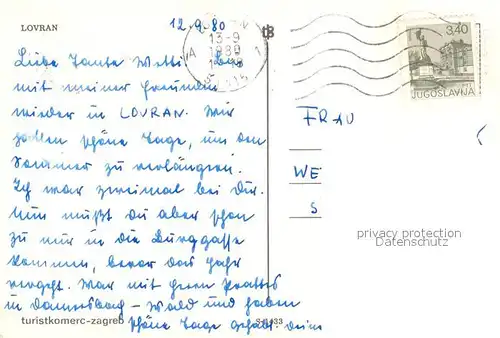 LOVRAN
12.9.80
13-9
1980
3.40
JUGOSLAVIJA
Liebe Tante Wetti! Bin
mit meiner Freundin
wieder in LOVRAN. Wir
haben schöne Tage, um den
Sommer zu verlängern.
Ich war zweimal bei Dir.
Nun mußt du aber schon
zu mir in die Burggasse
kommen, bevor das Jahr
vergeht. War mit Herrn
in - Wald und haben
schöne Tage gehabt. Deine
FRAU
WE
S
privacy protection
Datenschutz
turistkomerc-zagreb